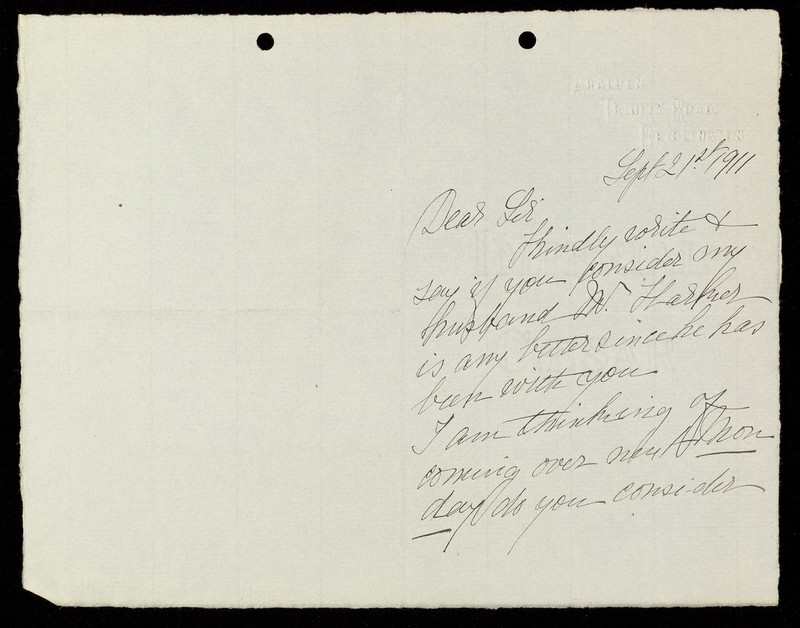 TRINITY ROAD,
BRIDLINGTON
Sept 21st 1911
Dear Sir
Kindly write &
say if you consider my
husband Mr. Harker
is any better since he has
been with you
I am thinking of
coming over next Mon
day do you consider